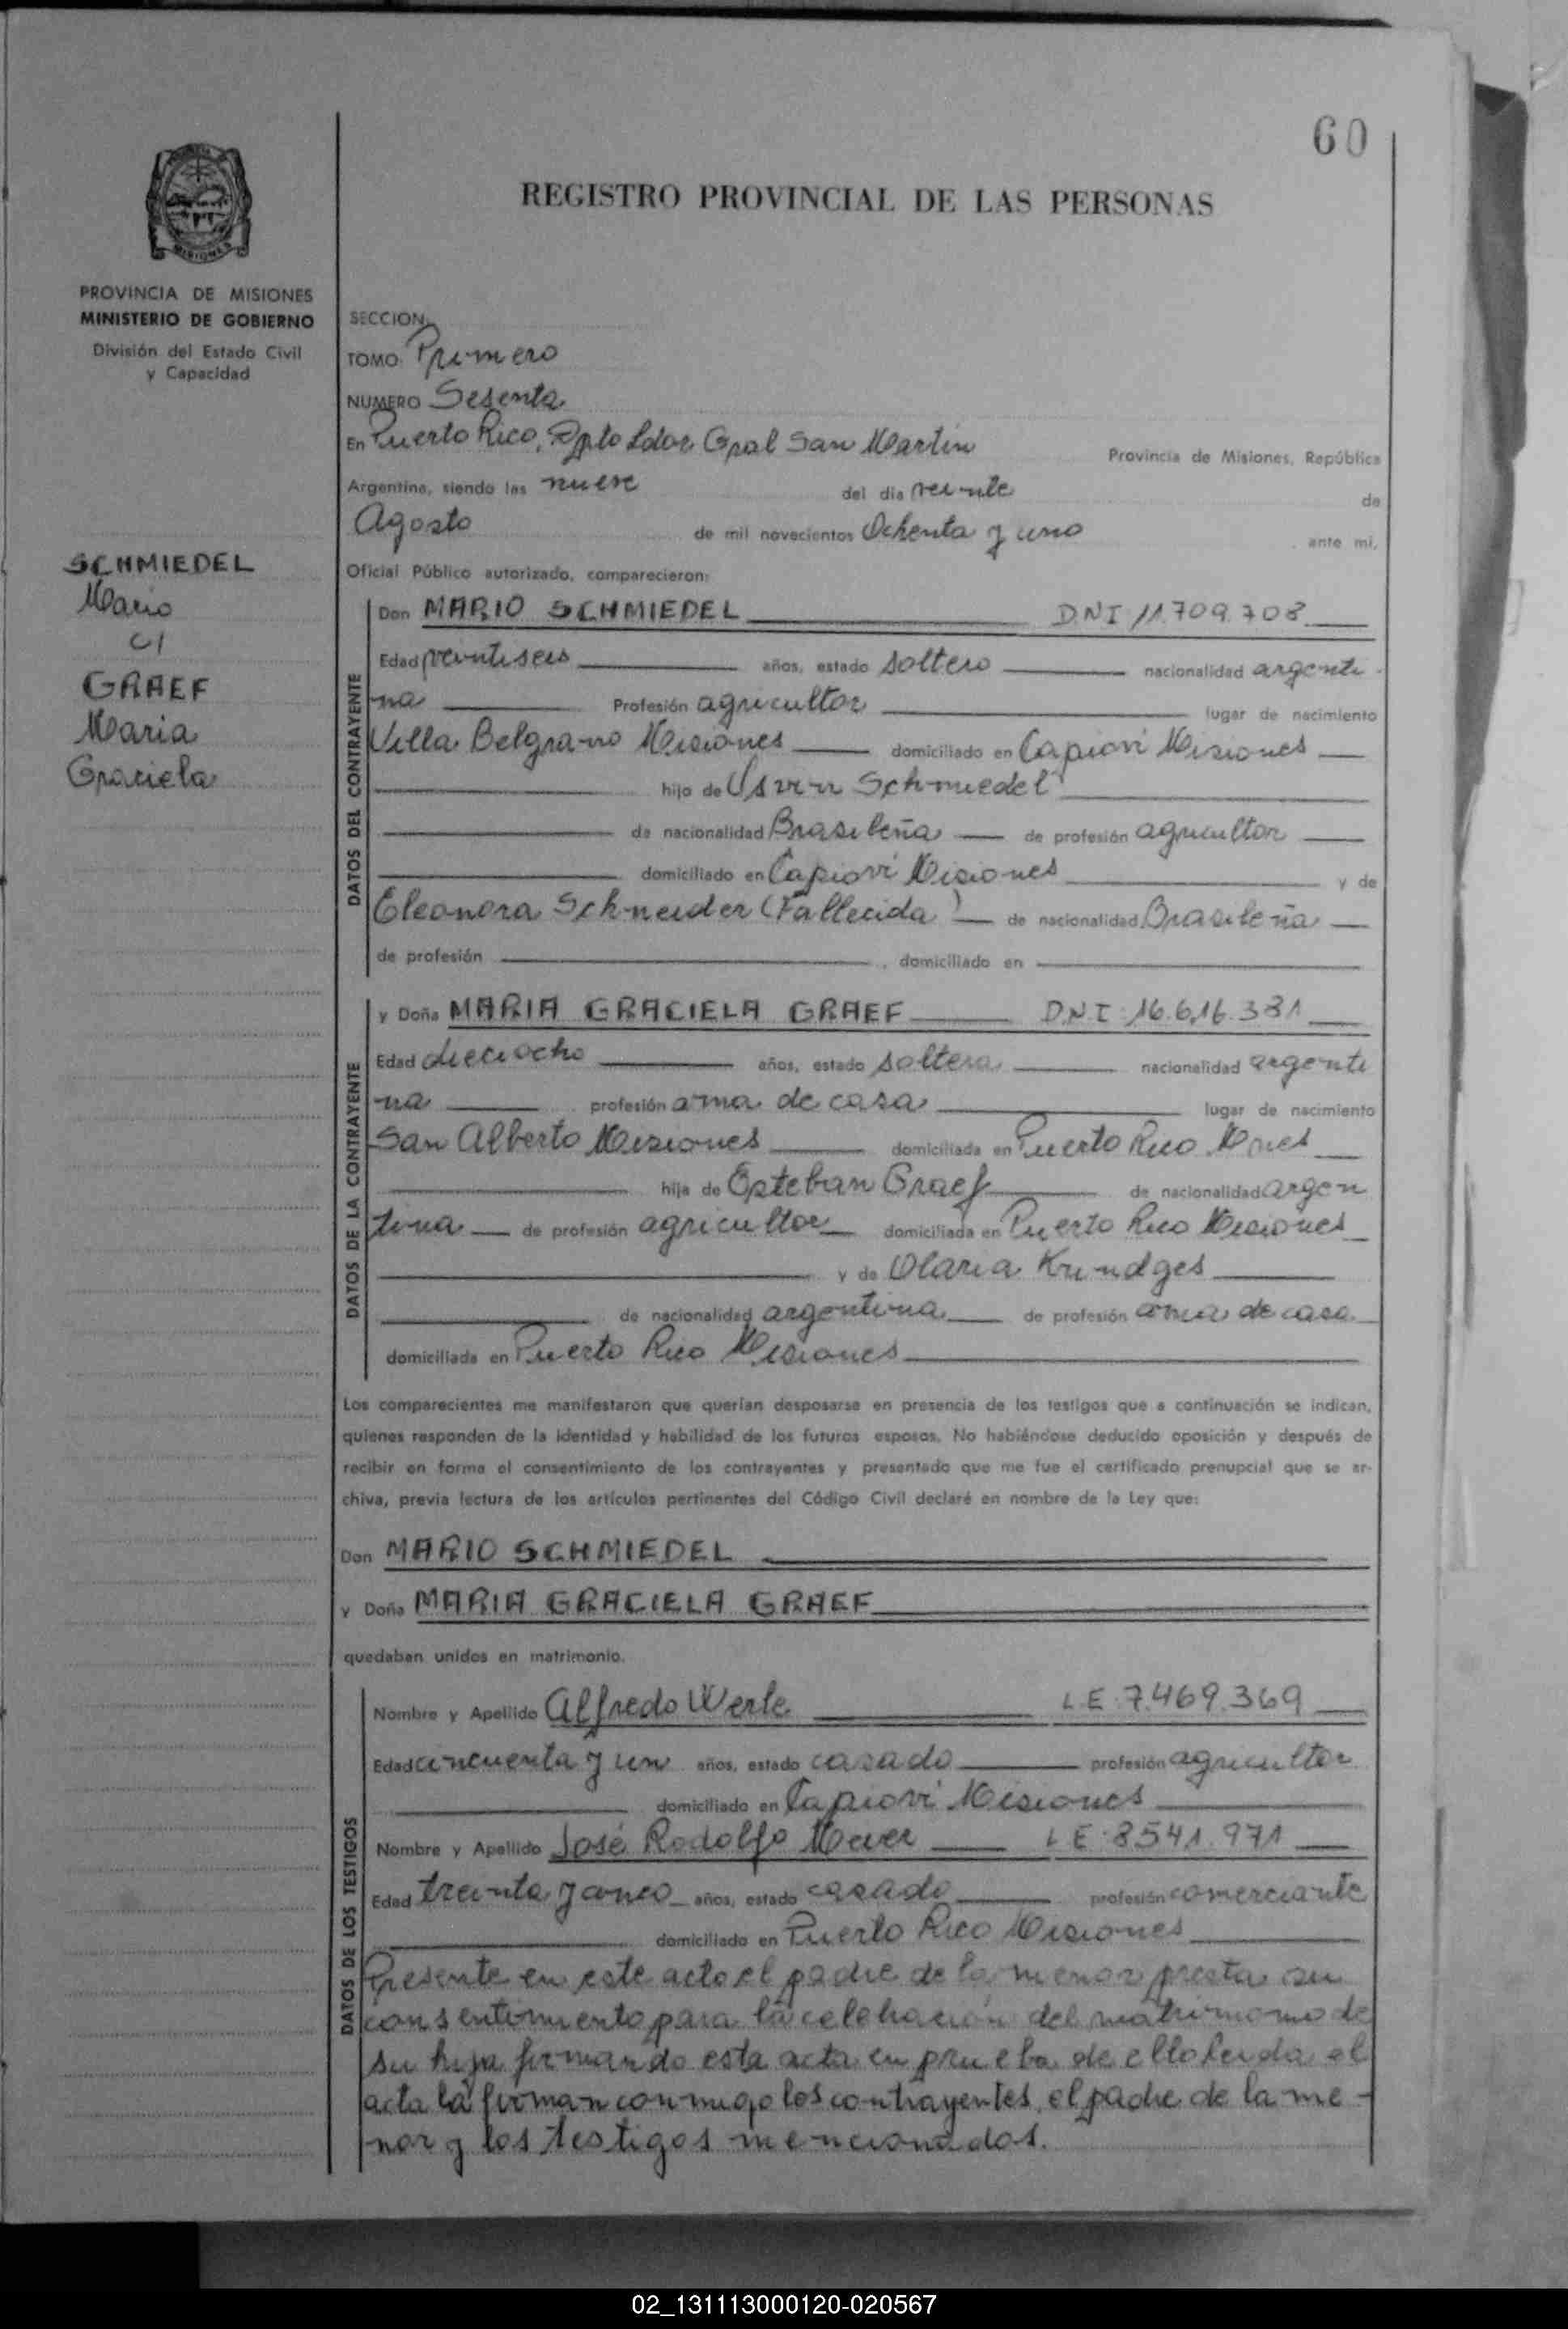 60
REGISTRO PROVINCIAL DE LAS PERSONAS
MISIONES
PROVINCIA DE MISIONES
MINISTERIO DE GOBIERNO
División del Estado Civil
y Capacidad
SCHMIEDEL
Mario
c/
GRAEF
Maria
Graciela
SECCION
TOMO Primero
NUMERO Sesenta
En Puerto Rico, Dpto Ldor Gral San Martin Provincia de Misiones, República
Argentina, siendo las nueve del día veinte de
Agosto de mil novecientos Ochenta y uno ante mi,
Oficial Público autorizado, comparecieron:
DATOS DEL CONTRAYENTE
Don MARIO SCHMIEDEL DNI 11.709.708
Edad veintiseis años, estado soltero nacionalidad argenti-
na Profesión agricultor lugar de nacimiento
Villa Belgrano Misiones domiciliado en Capiovi Misiones
hijo de Schmiedel
de nacionalidad Brasileña de profesión agricultor
domiciliado en Capiovi Misiones y de
Eleonora Schneider (Fallecida) de nacionalidad Brasileña
de profesión , domiciliado en
DATOS DE LA CONTRAYENTE
y Doña MARIA GRACIELA GRAEF DNI 16.616.381
Edad dieciocho años, estado soltera nacionalidad argenti
na profesión ama de casa lugar de nacimiento
San Alberto Misiones domiciliada en Puerto Rico Mnes
hija de Esteban Graef de nacionalidad argen
tina de profesión agricultor domiciliada en Puerto Rico Misiones
y de Olaria Kundges
de nacionalidad argentina de profesión ama de casa
domiciliada en Puerto Rico Misiones
Los comparecientes me manifestaron que querían desposarse en presencia de los testigos que a continuación se indican,
quienes responden de la identidad y habilidad de los futuros esposos. No habiéndose deducido oposición y después de
recibir en forma el consentimiento de los contrayentes y presentado que me fue el certificado prenupcial que se ar-
chiva, previa lectura de los artículos pertinentes del Código Civil declaré en nombre de la Ley que:
Don MARIO SCHMIEDEL
y Doña MARIA GRACIELA GRAEF
quedaban unidos en matrimonio.
DATOS DE LOS TESTIGOS
Nombre y Apellido Alfredo Werle L.E. 7.469.369
Edad cincuenta y un años, estado casado profesión agricultor
domiciliado en Capiovi Misiones
Nombre y Apellido José Rodolfo Meier L.E. 8541.971
Edad treinta y cinco años, estado casado profesión comerciante
domiciliado en Puerto Rico Misiones
Presente en este acto el padre de la menor presta su
consentimiento para la celebracion del matrimonio de
su hija firmando esta acta en prueba de ello leida el
acta la firman conmigo los contrayentes, el padre de la me-
nor y los testigos mencionados.
02_131113000120-020567